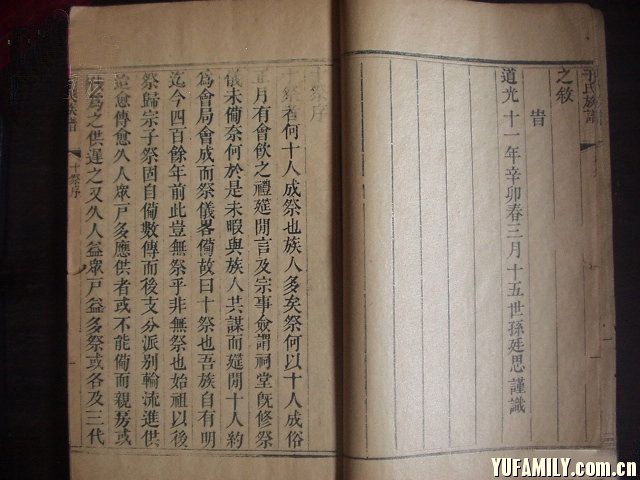 之敘
旹
道光十一年辛卯春三月十五世孫廷思謹識
氏族譜
十祭序
十祭者何十人成祭也族人多矣祭何以十人成俗
正月有會飲之禮筵間言及宗事僉謂祠堂旣修祭
儀未備奈何於是未暇與族人共謀而筵間十人約
為會局會成而祭儀畧備故曰十祭也吾族自有明
迄今四百餘年前此豈無祭乎非無祭也始祖以後
祭歸宗子祭固自備數傳而後支分派别輪流進供
迨愈傳愈久人眾戸多應供者或不能備而親房或
為之供遲之又久人益眾戸益多祭或各及三代
族譜
十祭序
YUFAMILY.com.cn